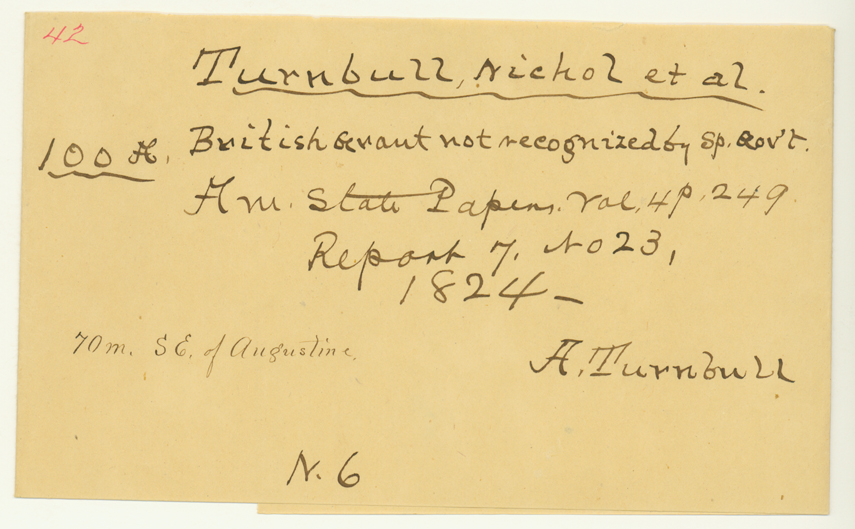 42
Turnbull, Nichol et al.
100 A. British Grant not recognized by Sp. Gov't.
Am. State Papers. Vol. 4 p. 249.
Report 7. No 23,
1824 —
70m. SE. of Augustine.
A. Turnbull
N. 6